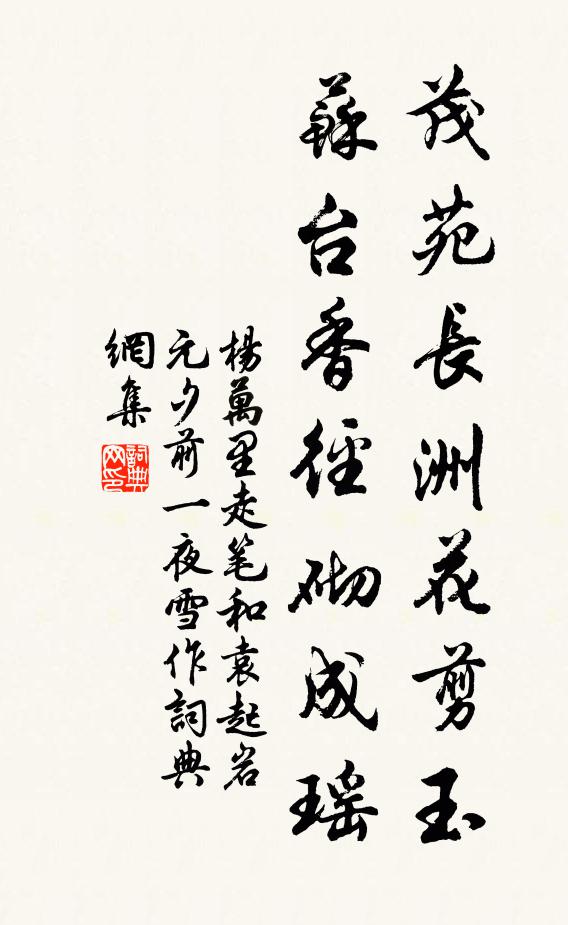 茂苑長洲花剪玉
蘇台香徑砌成瑶
楊萬里走笔和袁起岩
元夕前一夜雪作詞典
網集
詞典网印